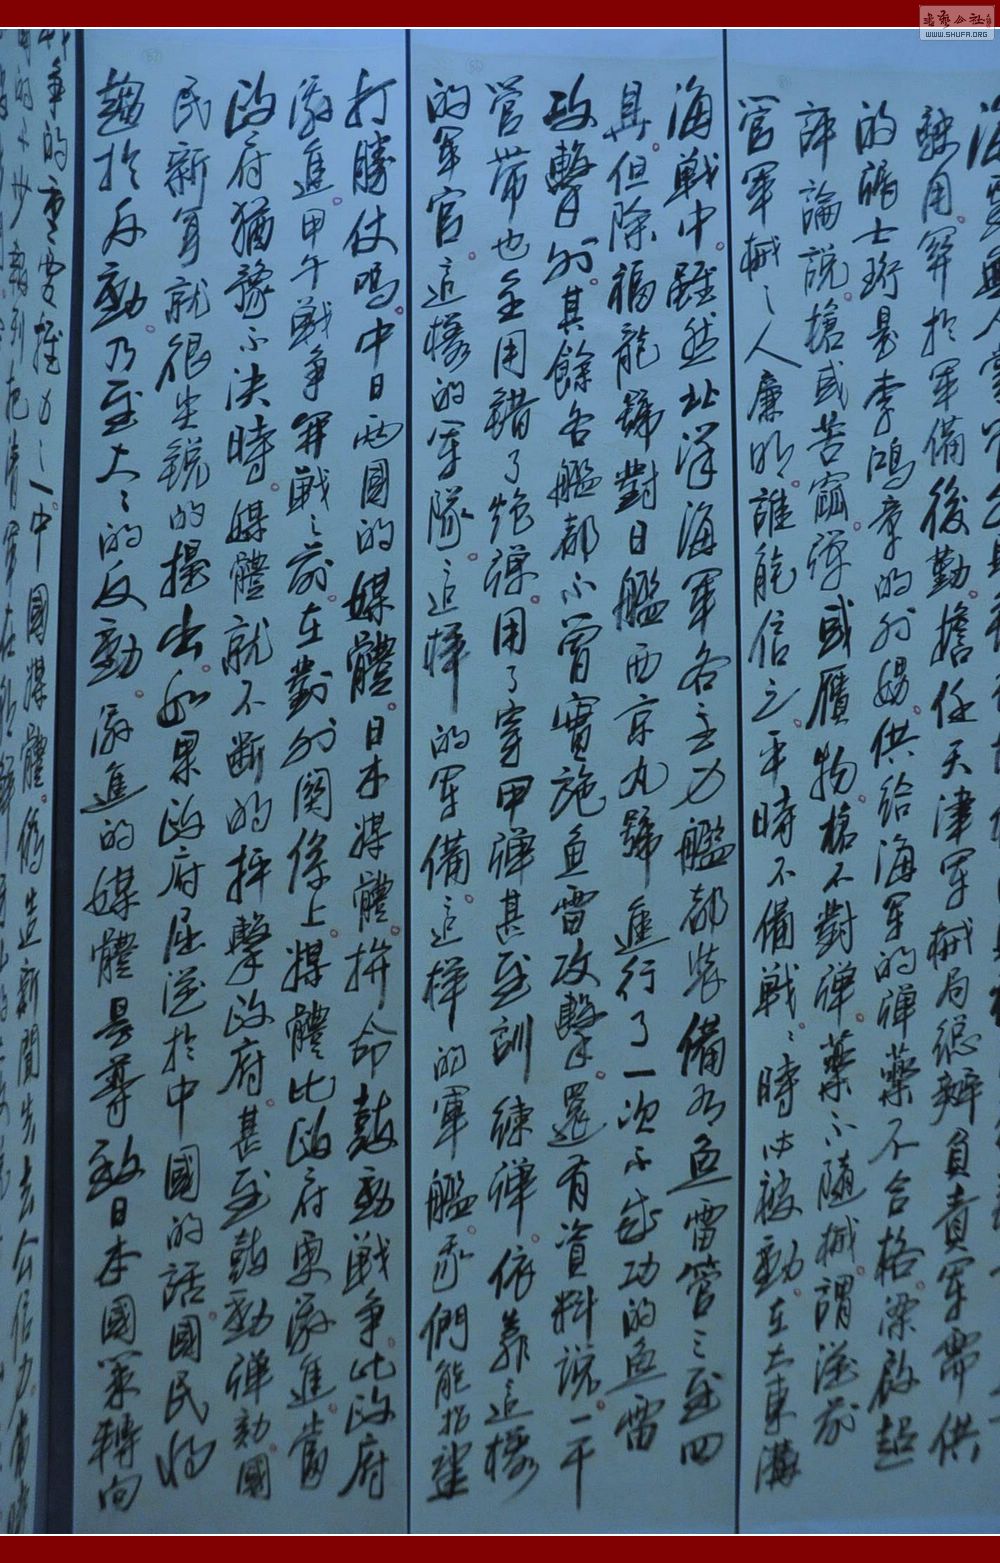 用弊於軍備後勤。擔任天津軍械局總辦負責軍需供
的張士珩是李鴻章的外甥。供給海軍的彈藥不合格。梁啟超
評論說。槍或苦窳彈或贋物。槍不對彈。藥不隨械。謂從前
管軍械之人廉明。誰能信之。平時不備戰。戰時必被動。在大東溝
海戰中。雖然北洋海軍各主力艦都裝備有魚雷管二至四
具。但除福龍號對日艦西京丸號進行了一次不成功的魚雷
攻擊外。其餘各艦都不曾實施魚雷攻擊。還有資料說。一干
管帶也全用錯了炮彈。用了穿甲彈甚至訓練彈。依靠這樣
的軍官。這樣的軍隊。這樣的軍備。這樣的軍艦。我們能指望
打勝仗嗎。中日兩國的媒體。日本媒體拚命鼓動戰爭。比政府
激進。甲午戰爭開戰之前。在對外關係上。媒體比政府更激進。當
政府猶豫不決時。媒體就不斷的抨擊政府。甚至鼓動彈劾。國
民新聞就很尖銳的提出。如果政府屈從於中國的話。國民將
趨於反動乃至大大的反動。激進的媒體是導致日本國策轉向
戰爭的重要推力之一。中國媒體偽造新聞失去公信力。
WWW.SHUFA.ORG